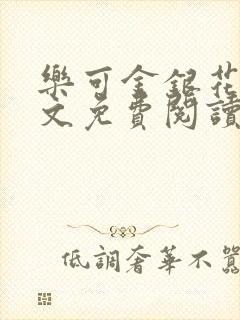 樂可金銀花
文免費閱讀
低調奢華不囂